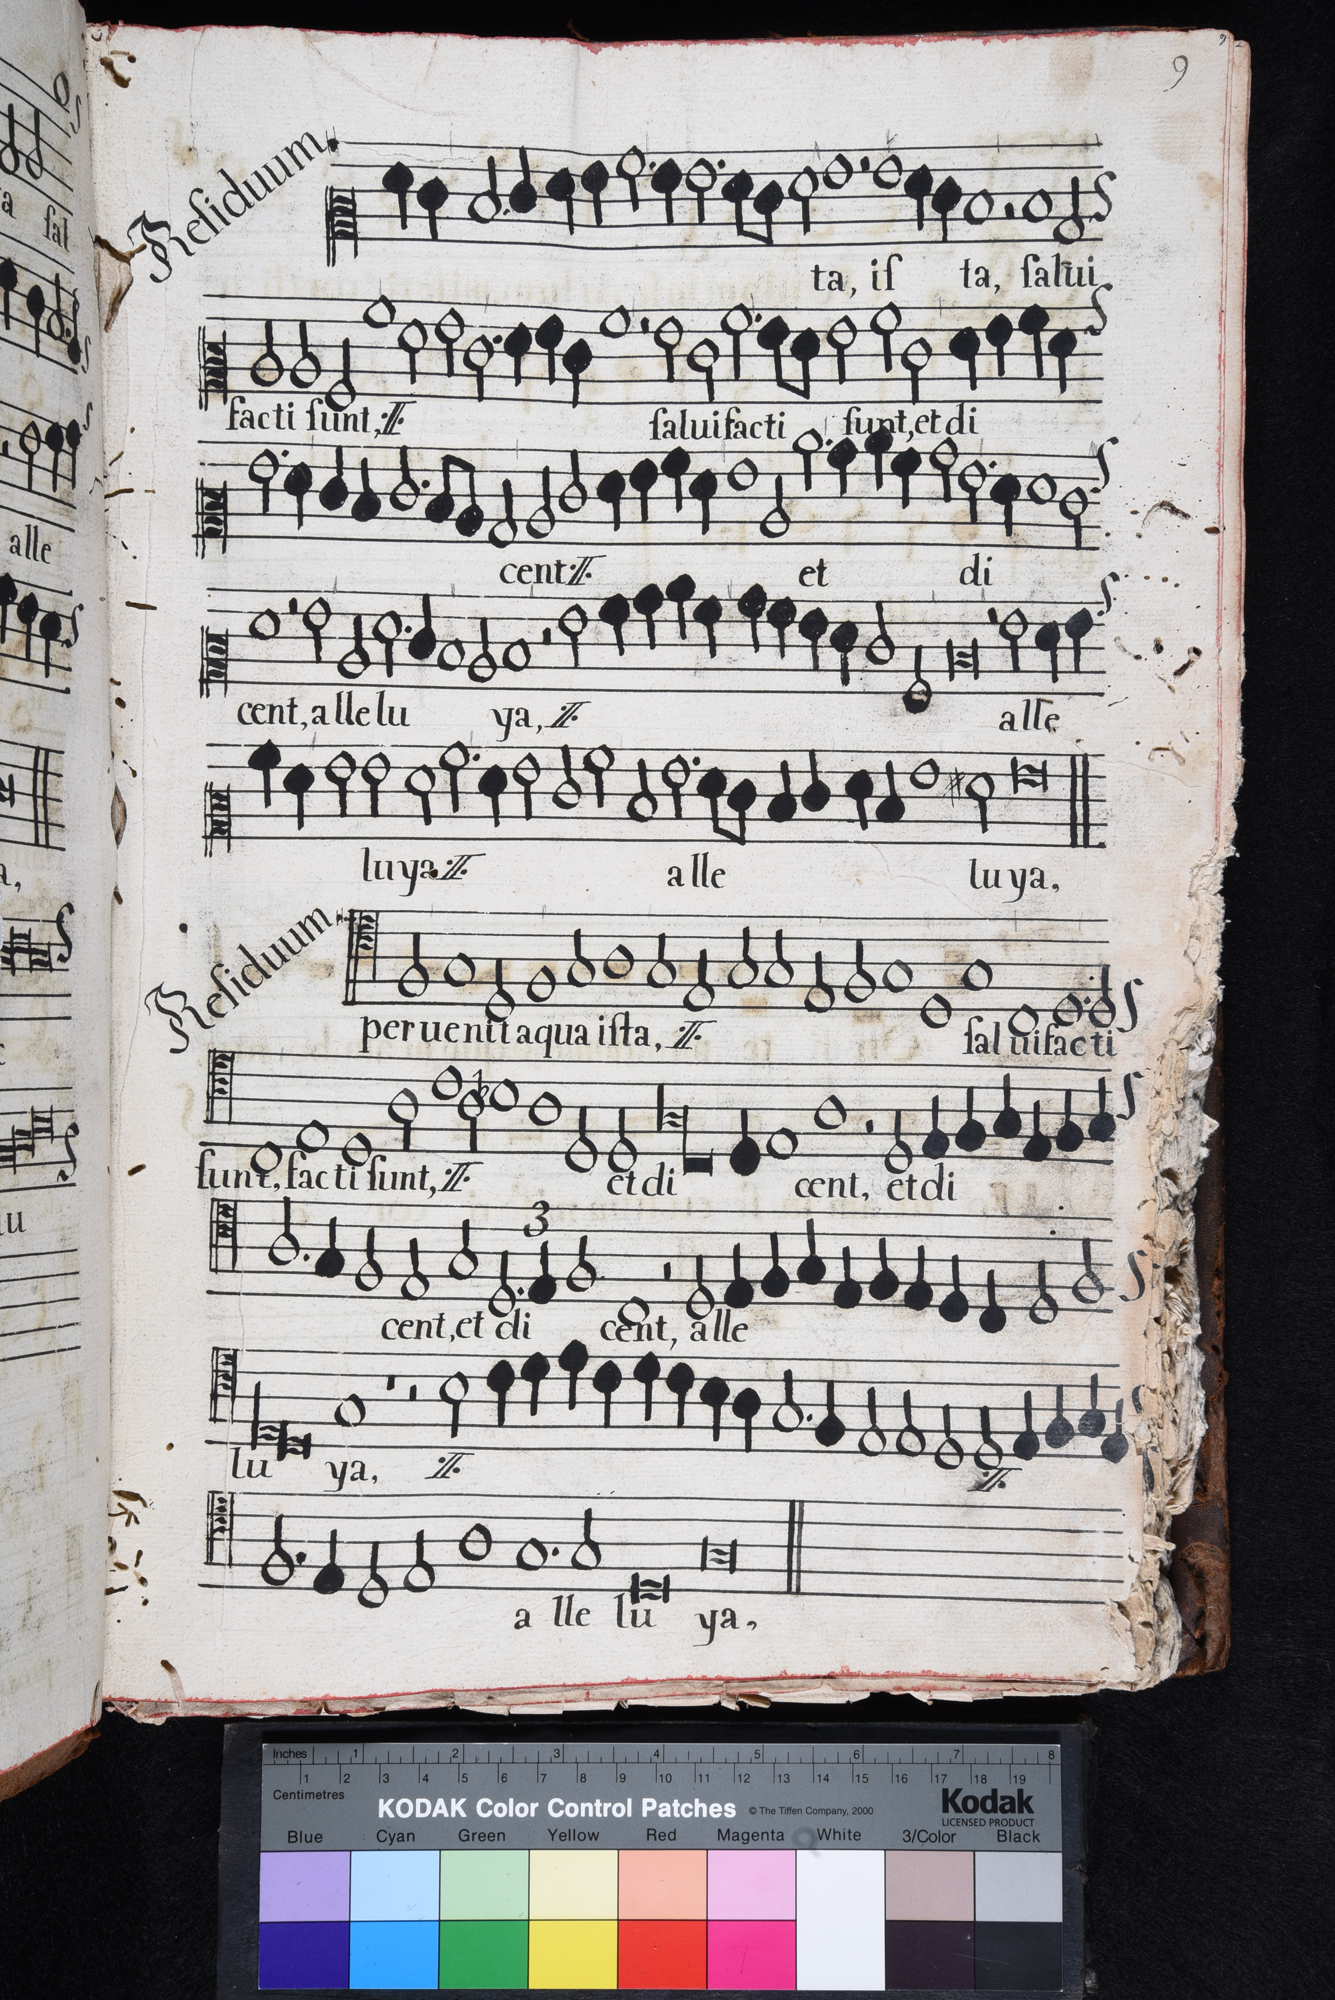 9
Residuum.
ta, is ta, salui
facti sunt, :ij:
saluifacti sunt, et di
cent :ij: et di
cent, allelu ya, :ij: alle
luya :ij: alle luya,
Residuum.
peruenit aqua ista, :ij: saluifacti
sunt, facti sunt, :ij: et di cent, et di
3
cent, et di cent, alle
lu ya, :ij: :ij:
a lle lu ya,
a sal
alle
a,
lu
Inches 1 2 3 4 5 6 7 8
Centimetres 1 2 3 4 5 6 7 8 9 10 11 12 13 14 15 16 17 18 19
KODAK Color Control Patches © The Tiffen Company, 2000 Kodak
LICENSED PRODUCT
Blue Cyan Green Yellow Red Magenta White 3/Color Black